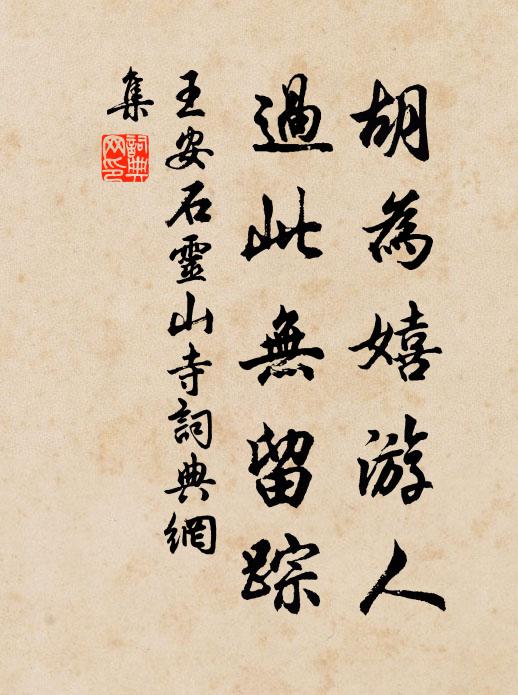 胡為嬉游人
過此無留踪
王安石靈山寺詞典網
集
詞典
网印